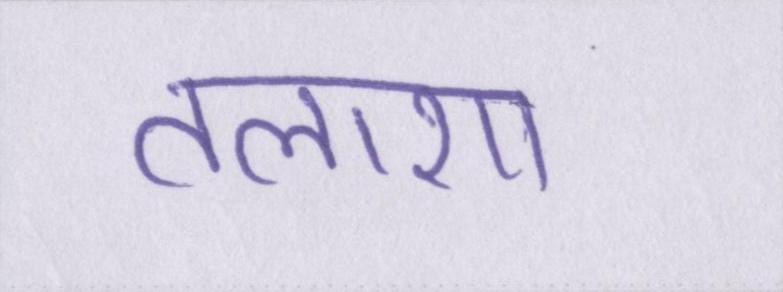 तलाशा